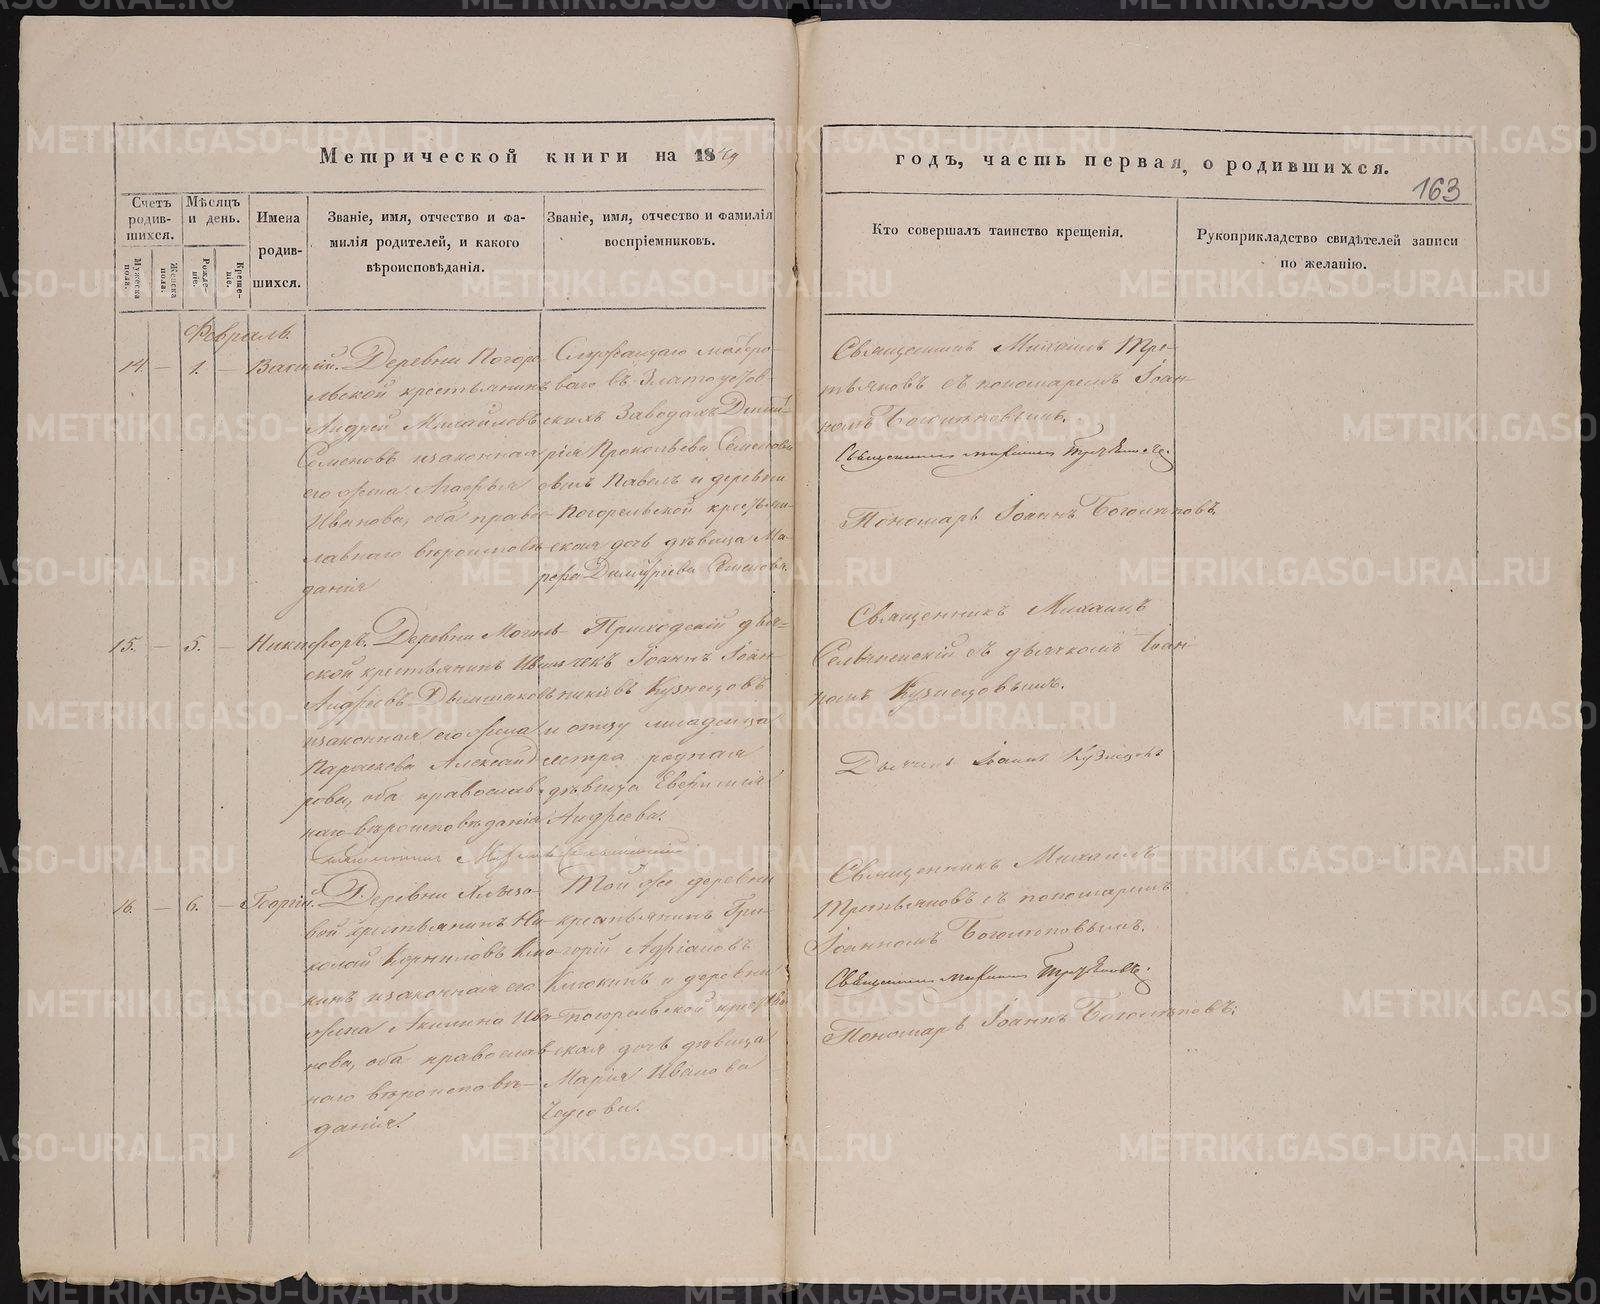 Метрической книги на 1849
годъ, часть первая, о родившихся.
163
Счетъ родившихся.
Мужеска пола.
Женска пола.
Мѣсяцъ и день.
Рожденіе.
Крещеніе.
Имена родившихся.
Званіе, имя, отчество и фамилія родителей, и какого вѣроисповѣданія.
Званіе, имя, отчество и фамилія воспріемниковъ.
Кто совершалъ таинство крещенія.
Рукоприкладство свидѣтелей записи по желанію.
Февраль.
14. — 1. —
Деревни Погоре-
льской крестьянинъ
Андрей Михайловъ
Семеновъ и законная
его жена Агафья
Иванова, оба правос-
лавнаго вѣроисповѣ-
данія
Служащаго
ваго въ Златоустов-
скихъ Заводахъ Дмит-
рія Прокопьева Семенова
сынъ Павелъ и деревни
Погорельской крестьян-
ская дочь дѣвица Ма-
рфа Димитріева Семенова.
Священникъ Михаилъ Тре-
тьяковъ съ пономаремъ Іоан-
номъ Боголѣповымъ.
Священникъ Михаилъ Третьяковъ.
Пономарь Іоаннъ Боголѣповъ.
15. — 5. — Никифоръ.
Деревни Могиль-
ской крестьянинъ Иванъ
Андреевъ
и законная его жена
Параскева Александ-
рова, оба православ-
наго вѣроисповѣданія
Приходскій дья-
чекъ Іоаннъ Іоан-
никіевъ Кузнецовъ
и отцу младенца
сестра родная
дѣвица Евфимія
Андреева.
Священникъ Михаилъ
съ дьячкомъ Іоан-
номъ Кузнецовымъ.
Дьячекъ Іоаннъ Кузнецовъ
Священникъ
16. — 6. — Георгій.
Деревни
вой крестьянинъ Ни-
колай Корниловъ Клю-
кинъ и законная его
жена Акилина Ива-
нова, оба православ-
наго вѣроисповѣ-
данія.
Той же деревни
крестьянинъ Гри-
горій Адріановъ
Клюкинъ и деревни
Погорельской крестьян-
ская дочь дѣвица
Марія Иванова
Священникъ Михаилъ
Третьяковъ съ пономаремъ
Іоанномъ Боголѣповымъ.
Священникъ Михаилъ Третьяковъ.
Пономарь Іоаннъ Боголѣповъ.
METRIKI.GASO-URAL.RU